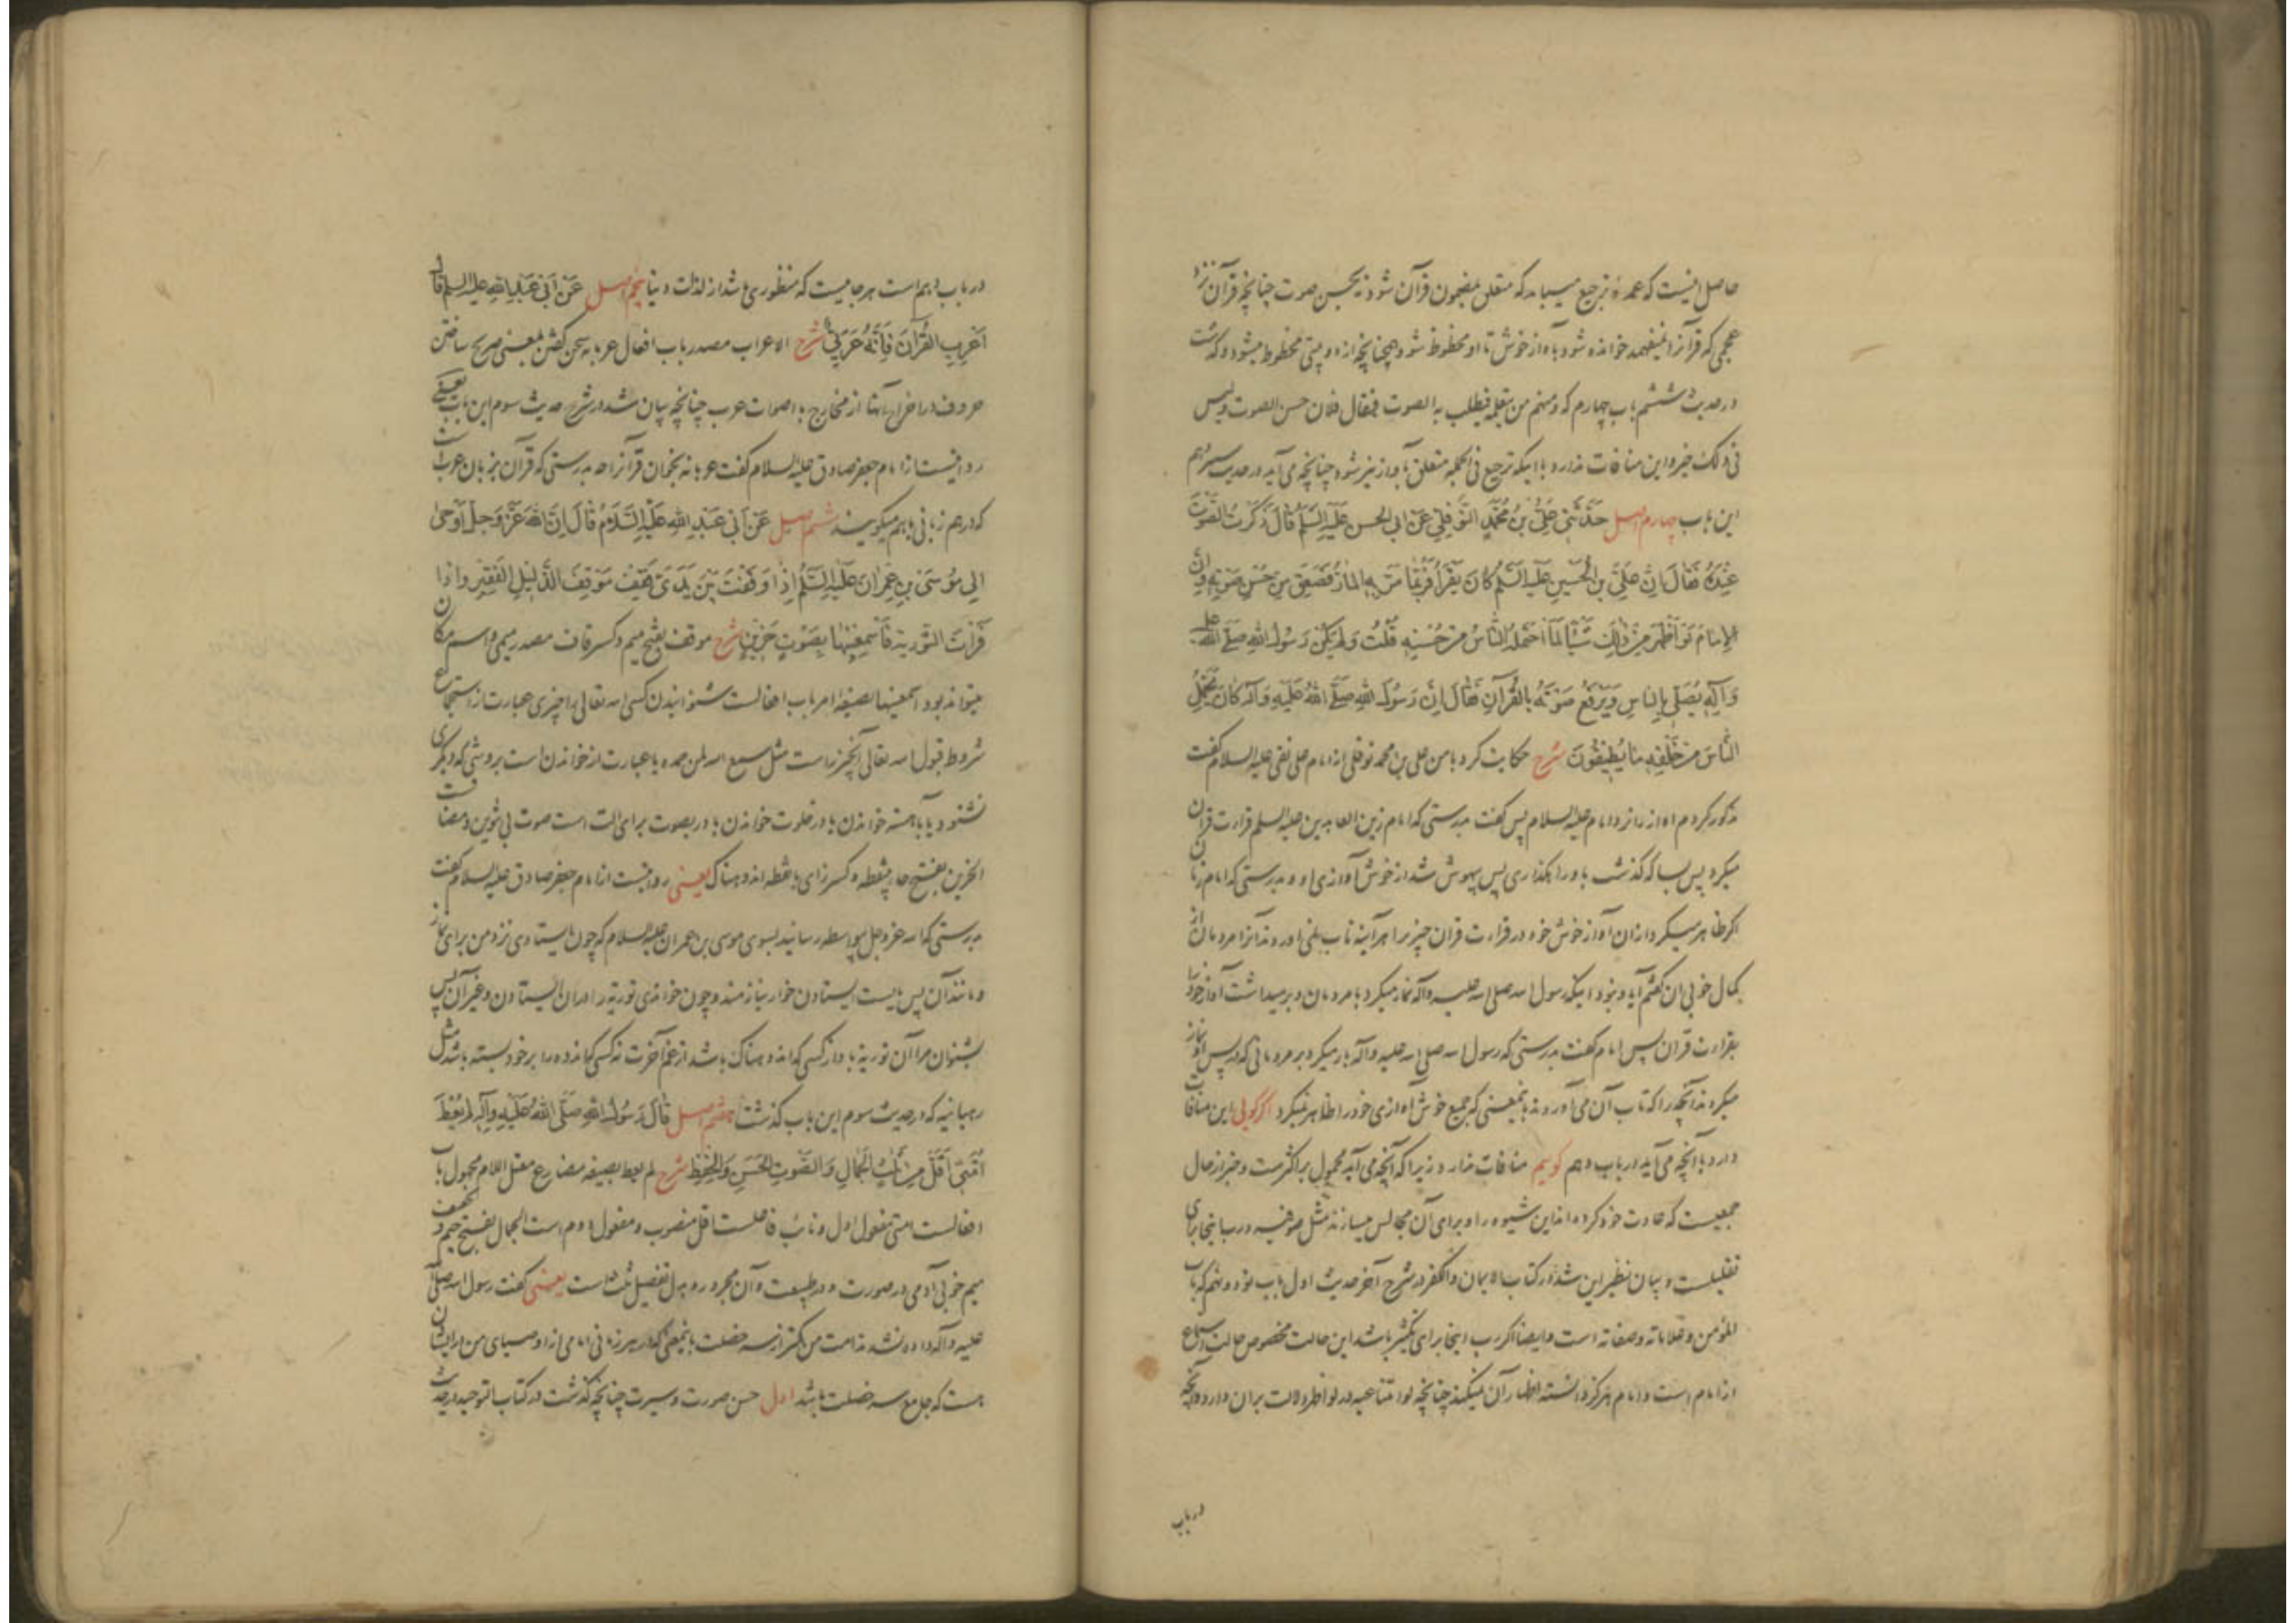 حاصل اینست که عمده ترجیع میباید که متعلق بمضمون قرآن شود نه بحسن صوت چنانچه قرآن نزد
عجمی که قرآنرا نمیفهمد خوانده شود بآواز خوش تا او محظوظ شود همچنانچه از دوبیتی محظوظ میشود و گذشت
در حدیث ششم باب چهارم که و منهم من یتعلمه فیطلب به الصوت فیقال فلان حسن الصوت و لیس
فی ذلک خیر و این منافات ندارد با اینکه ترجیع فی الجمله متعلق بآواز نیز شود چنانچه می آید در حدیث سیزدهم
این باب چهارم اصل حَدَّثَنِی عَلِیُّ بْنُ مُحَمَّدٍ النَّوْفَلِی عَنْ ابی الحسن عَلَیْهِ السَّلَمُ قَالَ ذَکَرْتُ الصَّوْتَ
عِنْدَهُ فَقَالَ اِنَّ عَلِیَّ بْنَ الْحُسَیْنِ عَلَیْهِ السَّلَمُ کَانَ یَقْرَأُ فَرُبَّمَا مَرَّ بِهِ الْمَارُّ فَصَعِقَ مِنْ حُسْنِ صَوْتِهِ وَاِنَّ
الْاِمَامَ لَوْ اَظْهَرَ مِنْ ذٰلِکَ شَیْئًا لَمَا احْتَمَلَهُ النَّاسُ مِنْ حُسْنِهِ قُلْتُ وَلَمْ یَکُنْ رَسُولُ اللهِ صَلَّی اللهُ عَلَیْهِ
وَآلِهِ یُصَلِّی بِالنَّاسِ وَیَرْفَعُ صَوْتَهُ بِالْقُرْآنِ فَقَالَ اِنَّ رَسُولَ اللهِ صَلَّی اللهُ عَلَیْهِ وَآلِهِ کَانَ یُحَمِّلُ
النَّاسَ مِنْ خَلْفِهِ مَا یُطِیقُونَ شرح حکایت کرد با من علی بن محمد نوفلی از امام علی نقی علیه السلام گفت
مذکور کردم آواز را نزد امام علیه السلام پس گفت بدرستی که امام زین العابدین علیه السلم قرارت قرآن
میکرد پس بسا که گذشت باو راهگذاری پس بیهوش شد از خوش آوازی او و بدرستی که امام زمان
اگر ظاهر میکرد از ان آواز خوش خود در قراءت قرآن چیزیرا هر آینه تاب نمی آوردند آنرا مردمان از
کمال خوبی آن گفتم آیا و نبود اینکه رسول الله صلی الله علیه وآله نماز میکرد با مردمان و برمیداشت آواز خود را
بقراءت قرآن پس امام گفت بدرستی که رسول الله صلی الله علیه وآله بار میکرد بر مردمانی که در پس او نماز
میکردند آنچه را که تاب آن می آوردند بانمعنی که جمیع خوش آوازی خود را ظاهر نمیکرد اگر گویی این منافات
دارد با آنچه می آید در باب دهم گوییم منافات ندارد زیرا که آنچه می آید محمول بر اکثرست و خبر از حال
جمعیست که عادت خود کرده اند این شیوه را و برای آن مجالس میسازند مثل صوفیه و رب اینجا برای
تقلیلست و بیان نظیر این شد در کتاب الایمان والکفر در شرح آخر حدیث اول باب نود و نهم که باب
المؤمن و علاماته و صفاته است و ایضا اگر رب اینجا برای تکثیر باشد این حالت مخصوص حالت سماع
از امام است و امام هرگز دانسته اظهار آن نمیکند چنانچه لو امتناعیه در لو اظهر دلالت بران دارد و آنچه
در باب
در باب دهم است هر جاییست که منظوری باشد از لذات دنیا پنجم اصل عَنْ اَبِی عَبْدِ اللهِ علیه السلم قال
اَعْرِبِ الْقُرْآنَ فَاِنَّهُ عَرَبِیٌّ شرح الاعراب مصدر باب افعال عربانه سخن گفتن بمعنی صریح ساختن
حروف در اخراج آنها از مخارج باصوات عرب چنانچه بیان شد در شرح حدیث سوم این باب یعنی
روایتست از امام جعفر صادق علیه السلام گفت عربانه بخوان قرآنرا چه بدرستی که قرآن بزبان عربانست
که در هم زبانی باهم میگویند ششم اصل عَنْ اَبِی عَبْدِ اللهِ عَلَیْهِ السَّلَامُ قَالَ اِنَّ اللهَ عَزَّ وَجَلَّ اَوْحٰی
اِلٰی مُوسَی بْنِ عِمْرَانَ عَلَیْهِ السَّلَمُ اِذَا وَقَفْتَ بَیْنَ یَدَیَّ فَقِفْ مَوْقِفَ الذَّلِیلِ الْفَقِیرِ وَاِذَا
قَرَأْتَ التَّوْرٰیةَ فَاَسْمِعْنِیهَا بِصَوْتٍ حَزِینٍ شرح موقف بفتح میم و کسر قاف مصدر میمی و اسم مکان
میتواند بود اسمعنیها بصیغه امر باب افعالست شنوانیدن کسی الله تعالی را چیزی عبارت از استجماع
شروط قبول الله تعالی آنچیز راست مثل سمع الله لمن حمده یا عبارت از خواندن است بروشی که دیگری
نشنود یا باهسته خواندن یا در خلوت خواندن با در بصوت برای آلت است صوت بی تنوین و مضافست
الحزین بفتح حاء بینقطه و کسر زای بانقطه اندوهناک یعنی روایتست از امام جعفر صادق علیه السلام گفت
بدرستی که الله عزوجل بیواسطه رسانید بسوی موسی بن عمران علیه السلام که چون ایستادی نزد من برای نماز
و مانند آن پس بایست ایستادن خوار نیازمند و چون خواندی توریة را در آن ایستادن و غیر آن پس
بشنوان مرا آن توریة بآواز کسی که اندوهناک باشد از غم آخرت نه کسی که اندوه را بر خود بسته باشد مثل
رهبانیه که در حدیث سوم این باب گذشت هفتم اصل قَالَ رَسُولُ اللهِ صَلَّی اللهُ عَلَیْهِ وَآلِهِ لَمْ یُعْطَ
اُمَّتِی اَقَلَّ مِنْ ثَلَاثٍ الْجَمَالِ وَالصَّوْتِ الْحَسَنِ وَالْحِفْظِ شرح لم یعط بصیغه مضارع معتل اللام مجهول باب
افعالست امتی مفعول اول و نائب فاعلست اقل منصوب و مفعول دوم است الجمال بفتح جیم و تخفیف
میم خوبی آدمی در صورت و در طبیعت و آن مجرور و بدل تفصیل ثلاث است یعنی گفت رسول الله صلی الله
علیه وآله داده نشد امت من کمتر از سه خصلت بانمعنی که در هر زمانی امامی از اوصیای من در ایشان
هست که جامع سه خصلت باشد اول حسن صورت و سیرت چنانچه گذشت در کتاب التوحید در حدیث